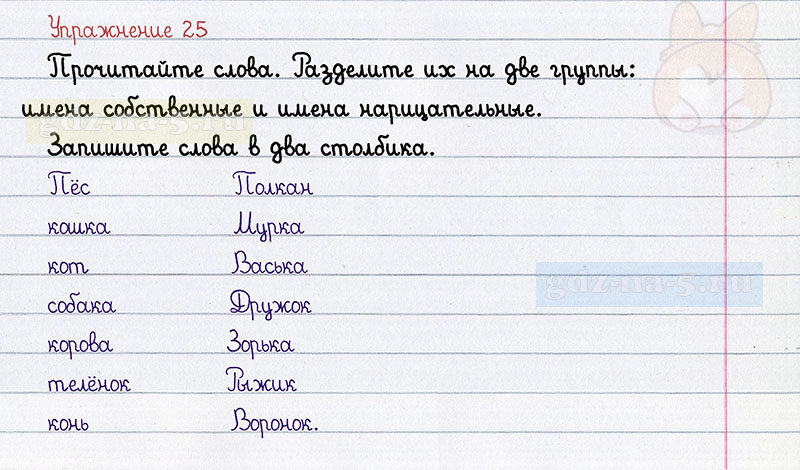 Упражнение 25
Прочитайте слова. Разделите их на две группы:
имена собственные и имена нарицательные.
Запишите слова в два столбика.
Пёс Полкан
кошка Мурка
кот Васька
собака Дружок
корова Зорька
телёнок Рыжик
конь Воронок.
gdz-na-5.ru
gdz-na-5.ru